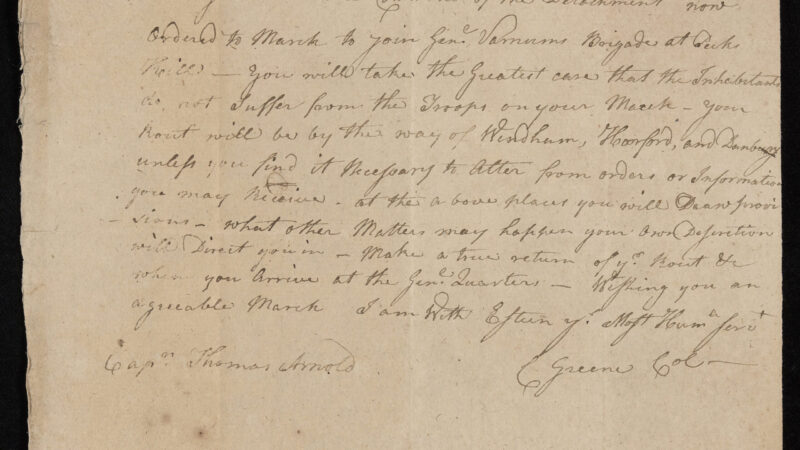 of the Detachment now
Ordered to March to join Genl. Varnums Brigade at Peeks
Kill — You will take the Greatest care that the Inhabitants
do not Suffer from the Troops on your March — Your
Rout will be by the way of Windham, Harford, and Danbury
unless you find it Necessary to Alter from orders or Information
you may Receive. at the above places you will Draw provi
– sions – what other Matters may happen your Own Descretion
will Direct you in — Make a true return of yr. Rout &c
when you Arrive at the Genl. Quarters — Wishing you an
agreeable March I am With Esteem yr. Most Huml. Servt
Capn. Thomas Arnold
C Greene Col —